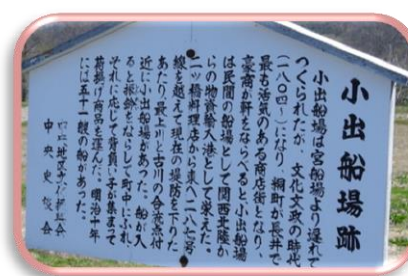 小出船場跡
小出船場は宮船場より遅れて
つくられたが、文化文政の時代
(一八〇四〜)になり、桐町が長井で
最も活気のある商店街となり、
豪商が軒をならべると小出船場
は民間の船場として関西北陸か
らの物資輸入港として栄えた。
二ッ橋料理店から東へ二八七号
線を越えて現在の堤防を下りた
あたり、最上川と古川の合流点付
近に小出船場があった。船が入
ると振鈴をならして町中にふれ
それに応じて背負い子が集まって
荷揚げ商品を運んだ。明治十年
には五十一艘の船があった。
中央地区文化振興会
中央史談会